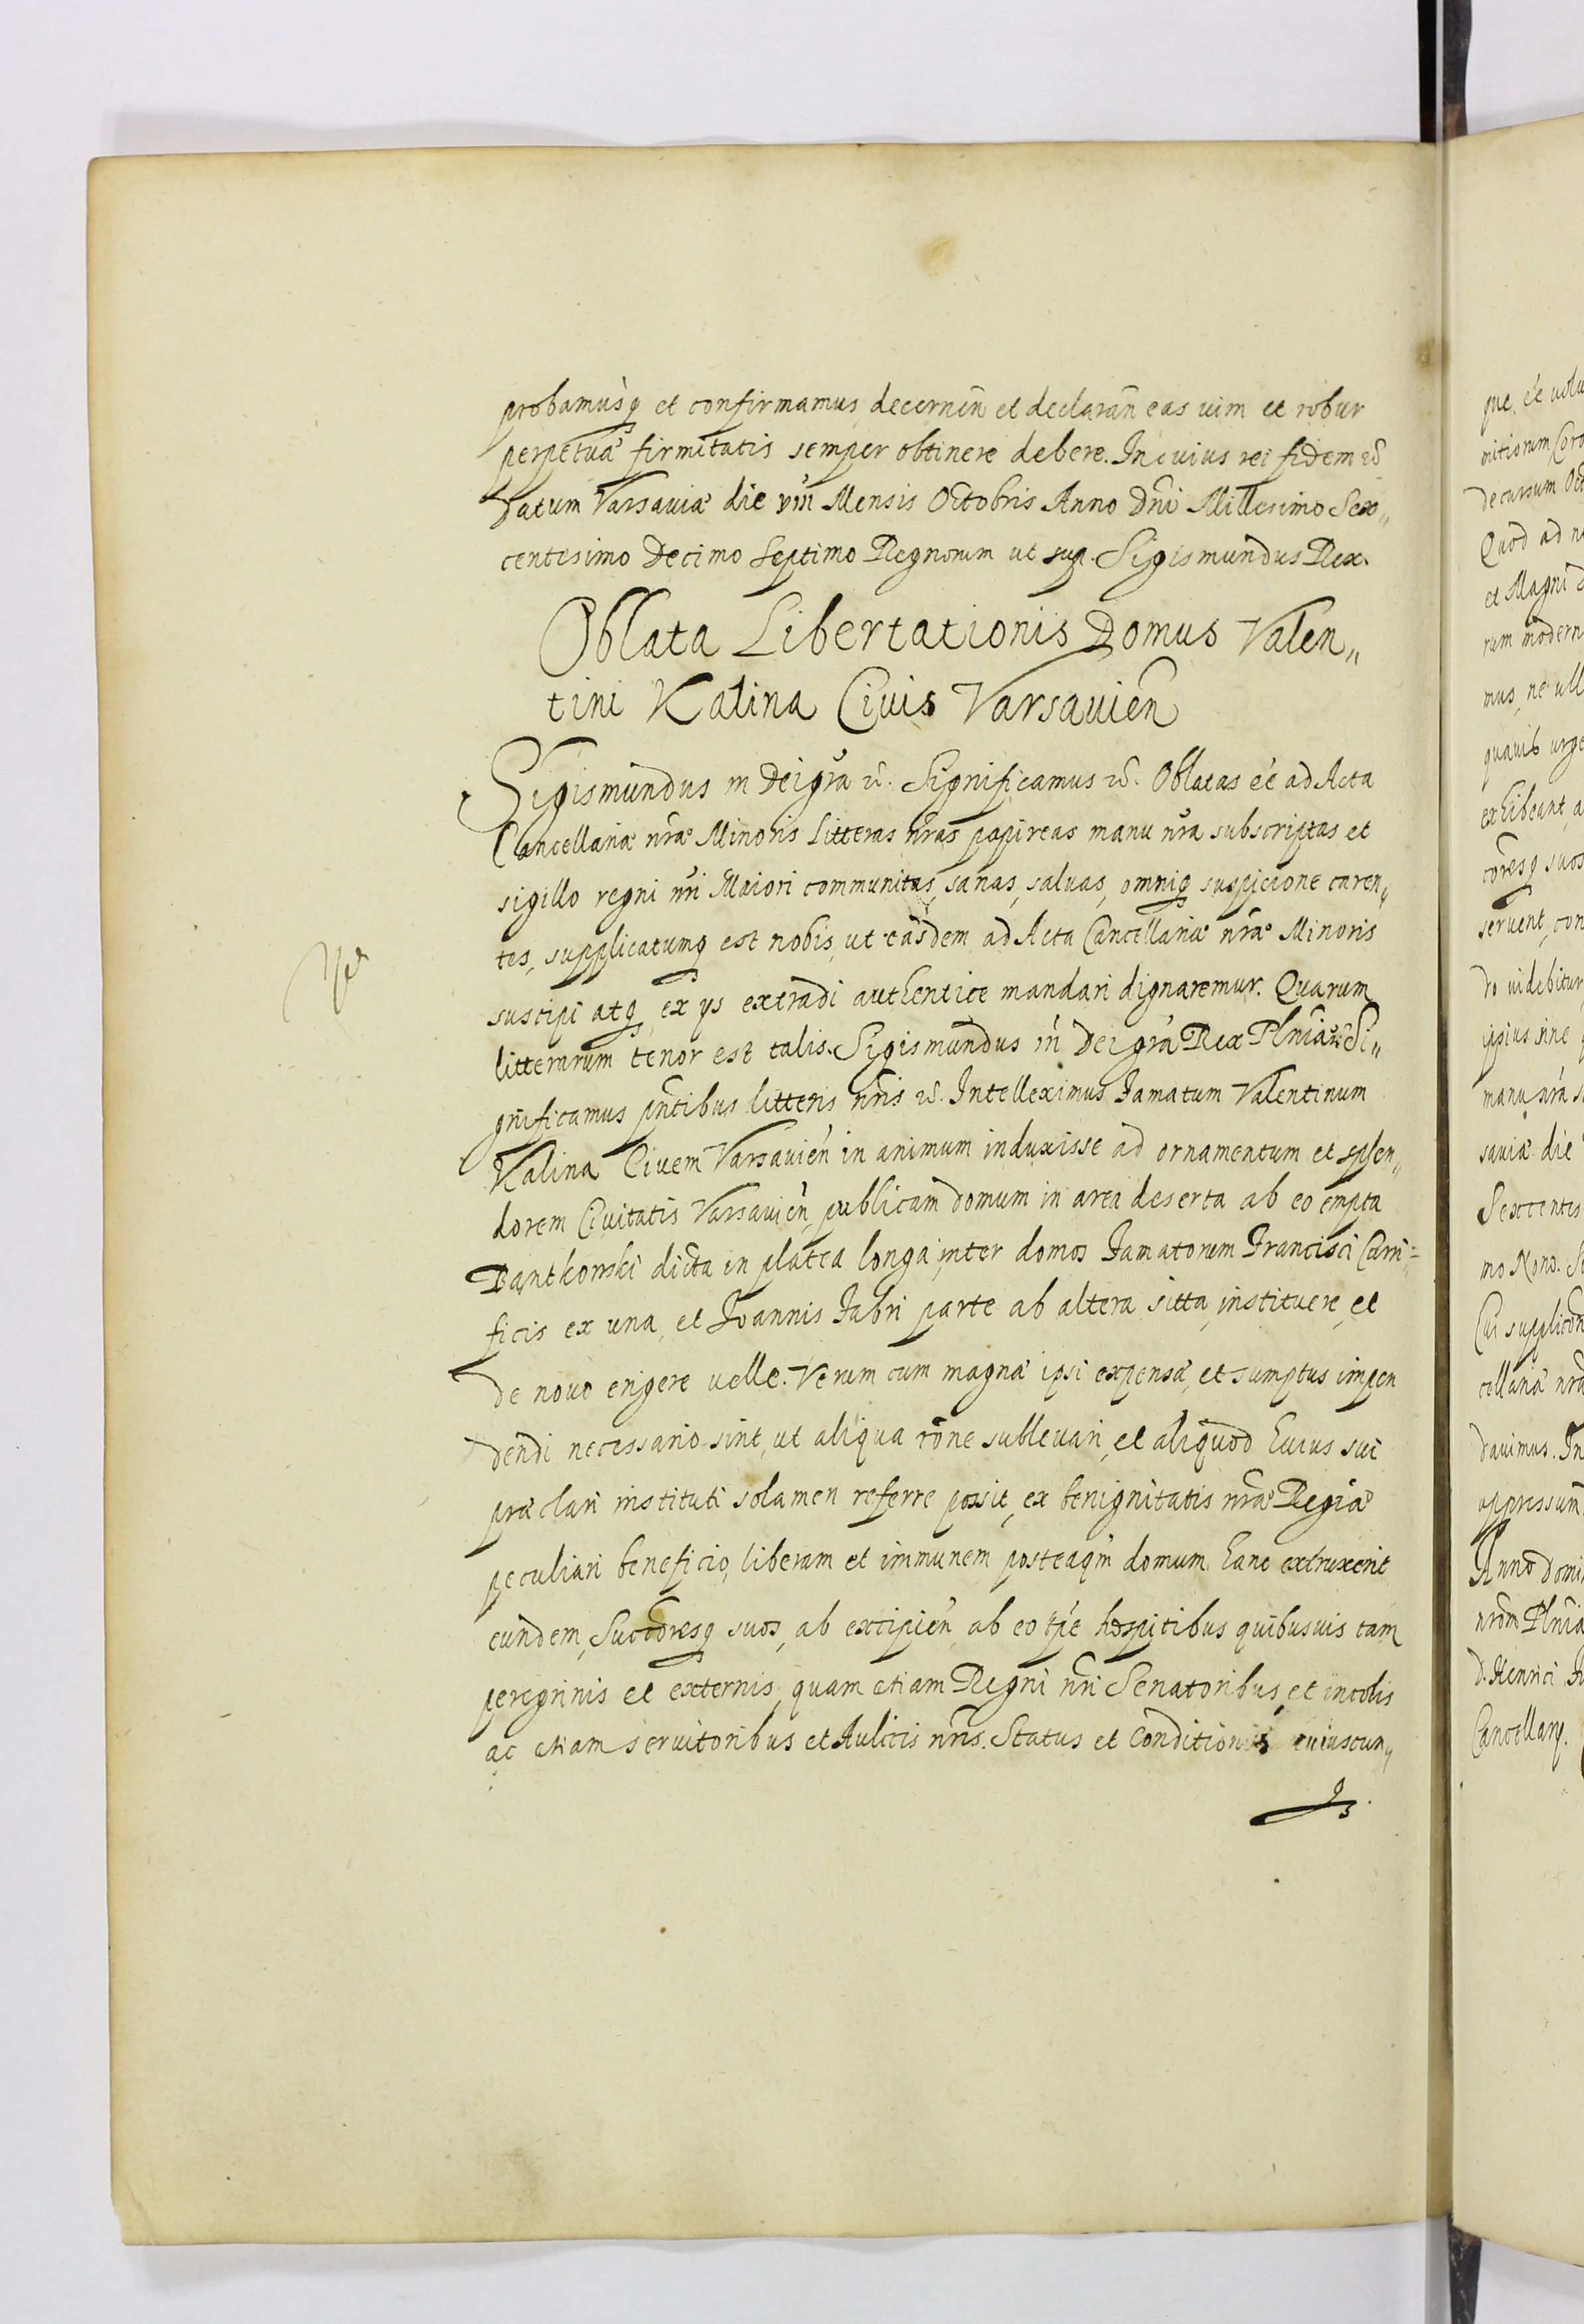 probamusq et confirmamus, decernen̄ et declaran̄ eas uim et robur
perpetuæ firmitatis semper obtinere debere. In cuius rei fidem &c̃
Datum Varsauiæ die viii Mensis Octobris Anno Dn̄i Millesimo Sex„
centesimo Decimo Septimo Regnorum ut sup̱. Sigismundus Rex.
Oblata Libertationis Domus Valen„
tini Kalina Ciuis Varsauien̄
Sigismundus III Dei gr̃a &c̃. Significamus &c̃. Oblatas eẽ ad Acta
Cancellariæ nr̃æ Minoris Litteras nr̃as papireas manu nr̃a subscriptas et
sigillo regni nr̃i Maiori communitas, sanas, saluas, omniq suspicione caren„
tes, supplicatumq est nobis, ut easdem ad Acta Cancellariæ nr̃æ Minoris
suscipi atq ex ijs extradi authentice mandari dignaremur. Quarum
litterarum tenor est talis. Sigismundus III Dei gr̃a Rex Plniæ &c̃ Si„
gnificamus pñtibus litteris nr̃is &c̃. Intelleximus Famatum Valentinum
Kalina Ciuem Varsauien̄ in animum induxisse ad ornamentum et splen„
dorem Ciuitatis Varsauien̄, publicam domum in area deserta ab eo empta
Bantkowski dicta in platea longa, inter domos Famatorum Francisci Carni„
ficis ex una, et Joannis Fabri parte ab altera sitta, instituere, et
de nouo erigere uelle. Verum cum magnæ ipsi expensæ, et sumptus impen
dendi necessario sint, ut aliqua rõne subleuari, et aliquod huius sui
præclari instituti solamen referre possit, ex benignitatis nr̃æ Regiæ
peculiari beneficio, liberam et immunem posteaqm̃ domum hanc extruxerit
eundem, Succõresq suos, ab excipien̄, ab eo tp̃e hospitibus quibusuis tam
peregrinis et externis, quam etiam Regni nr̃i Senatoribus, et incolis
ac etiam seruitoribus et Aulicis nr̃is. Status et Conditionis cuiuscun„
pue, eẽ uolu
mitiorum Coro
decursum Oct
Quod ad n
et Magni d
rum modern
mus, ne ull
quauis urge
exhibeant, a
cõresq suos
seruent, con
do uidebitur
ipsius sine
manu nr̃a s
sauiæ die
Sexcentes
mo Nono. S
Cui supplicõn
cellariæ nr̃æ
dauimus. In
appressum
Anno Domi
nrõm Plniæ
D. Henrici F
Cancellarij.